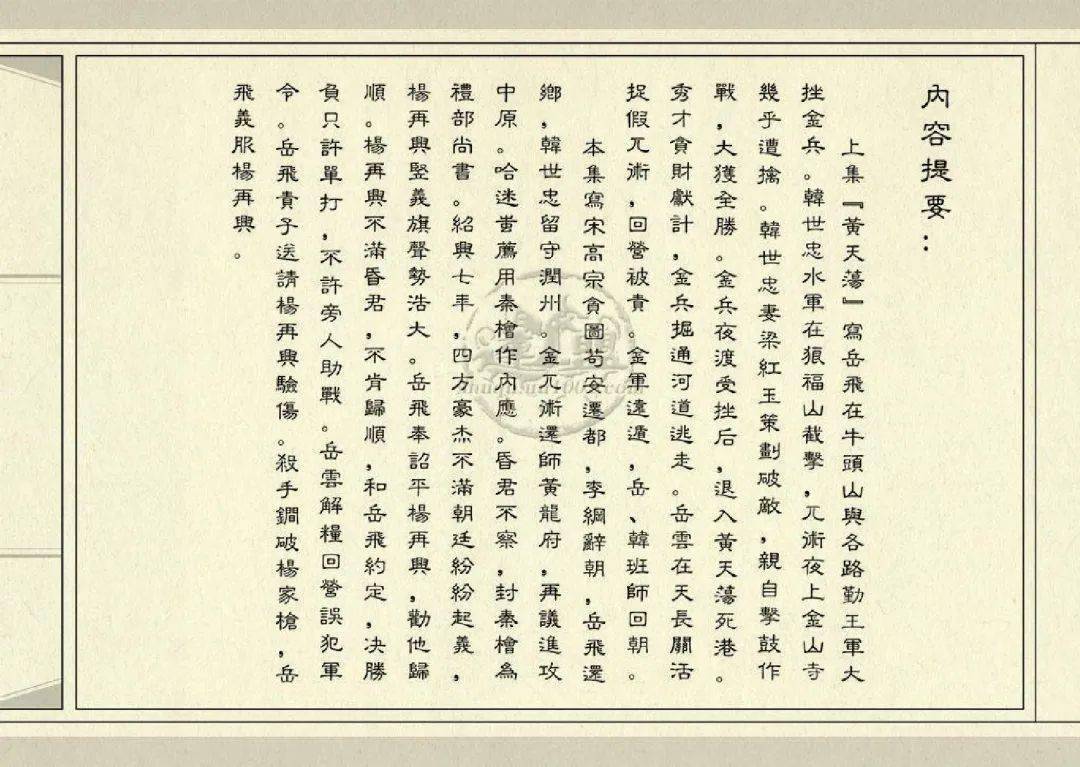 內容提要：
上集『黃天蕩』寫岳飛在牛頭山與各路勤王軍大
挫金兵。韓世忠水軍在狼福山截擊，兀術夜上金山寺
幾乎遭擒。韓世忠妻梁紅玉策劃破敵，親自擊鼓作
戰，大獲全勝。金兵夜渡受挫后，退入黃天蕩死港。
秀才貪財獻計，金兵掘通河道逃走。岳雲在天長關活
捉假兀術，回營被責。金軍遠遁，岳、韓班師回朝。
本集寫宋高宗貪圖苟安遷都，李綱辭朝，岳飛還
鄉，韓世忠留守潤州。金兀術還師黃龍府，再議進攻
中原。哈迷蚩薦用秦檜作內應。昏君不察，封秦檜為
禮部尚書。紹興七年，四方豪杰不滿朝廷紛紛起義，
楊再興堅義旗聲勢浩大。岳飛奉詔平楊再興，勸他歸
順。楊再興不滿昏君，不肯歸順，和岳飛約定，决勝
負只許單打，不許旁人助戰。岳雲解糧回營誤犯軍
令。岳飛責子送請楊再興驗傷。殺手鐧破楊家槍，岳
飛義服楊再興。